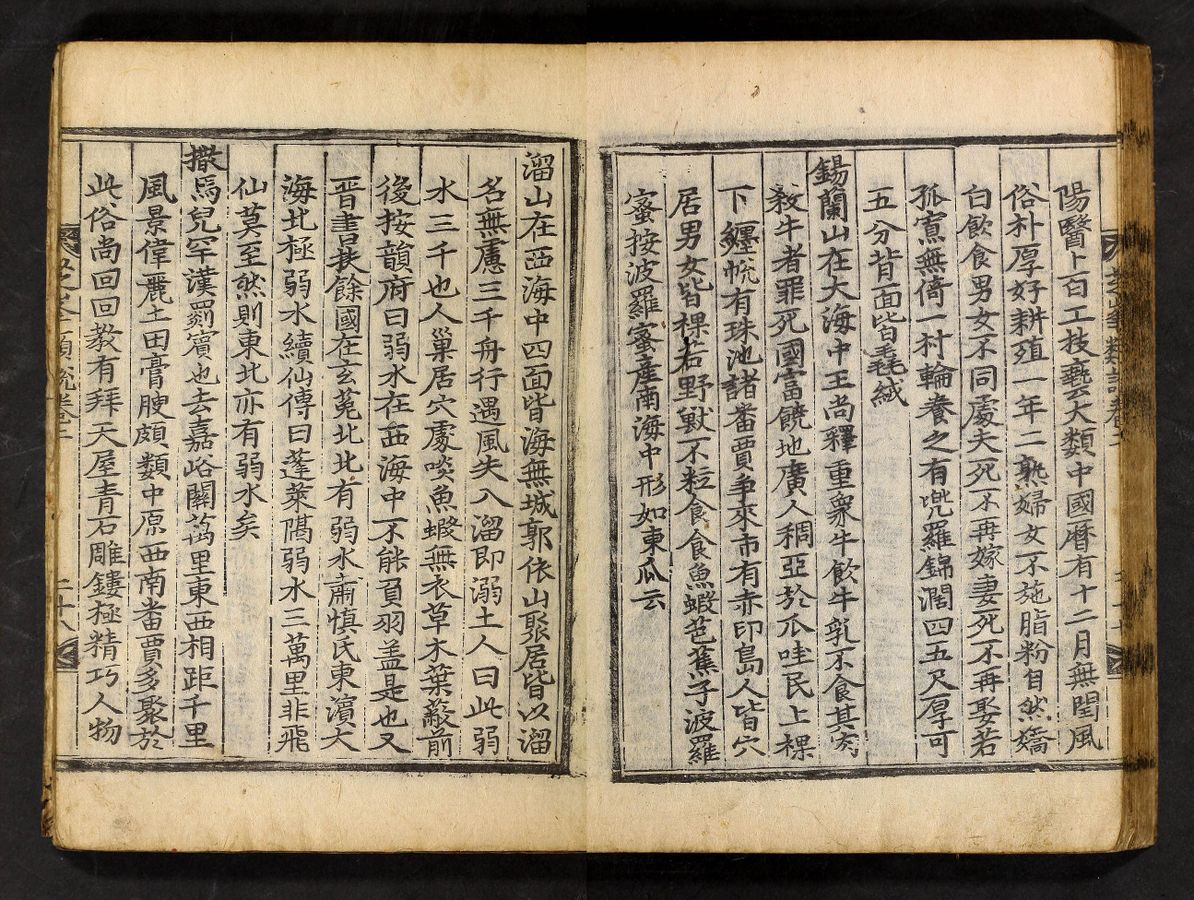 陽醫卜百工技藝大類中國曆有十二月無閏風
俗朴厚好耕殖一年二熟婦女不施脂粉自然嬌
白飮食男女不同處夫死不再嫁妻死不再娶若
孤寡無倚一村輪養之有兠羅錦濶四五尺厚可
五分背面皆毳絨
錫蘭山在大海中王尚釋重衆牛飮牛乳不食其肉
殺牛者罪死國富饒地廣人稠亞於爪哇民上裸
下纒帨有珠池諸畨賈爭來市有赤印島人皆穴
居男女皆裸若野獸不粒食食魚蝦芭蕉子波羅
蜜按波羅蜜産南海中形如東瓜云
溜山在西海中四面皆海無城郭依山聚居皆以溜
名無慮三千舟行遇風失入溜即溺土人曰此弱
水三千也人巢居穴處啖魚蝦無衣草木葉蔽前
後按韻府曰弱水在西海中不能負羽盖是也又
晋書扶餘國在玄菟北北有弱水肅愼氏東濱大
海北極弱水續仙傳曰蓬萊隔弱水三萬里非飛
仙莫至然則東北亦有弱水矣
撒馬兒罕漢罽賓也去嘉峪關萬里東西相距千里
風景偉麗土田膏腴頗類中原西南畨賈多聚於
此俗尚回回敎有拜天屋靑石雕鏤極精巧人物
二十八